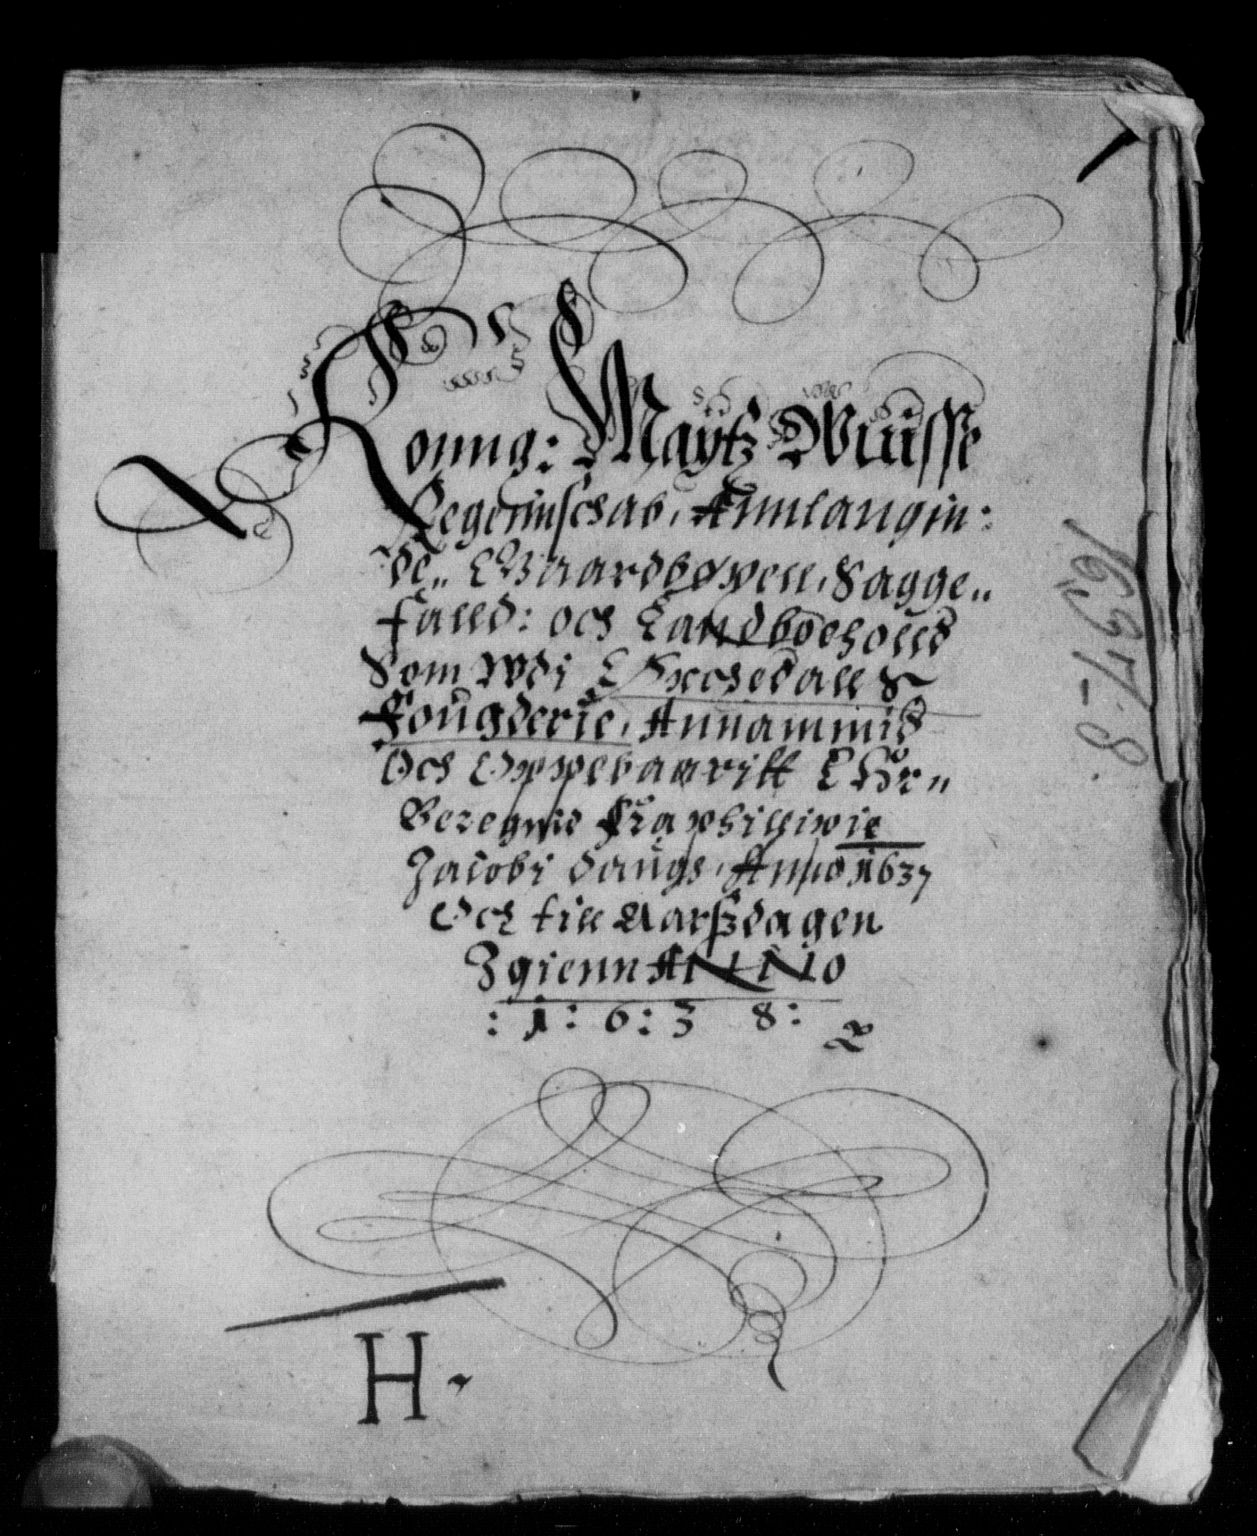 Konng: Maÿtz Wüisse
Regennschab, Annlangin:
de„ Waardbøxell, Sagge„
falld: och Landboeholld
Som Wdi Hechedall &
Fougderie, Annammid
Och Oppebaaritt Ehr„
Beregnid fra Philippie
Jacobi daugs, Anno 1637
Och till Aarßdagen
Igienn ANNO
: 1: 6: 3 8:
1637-8.
H.